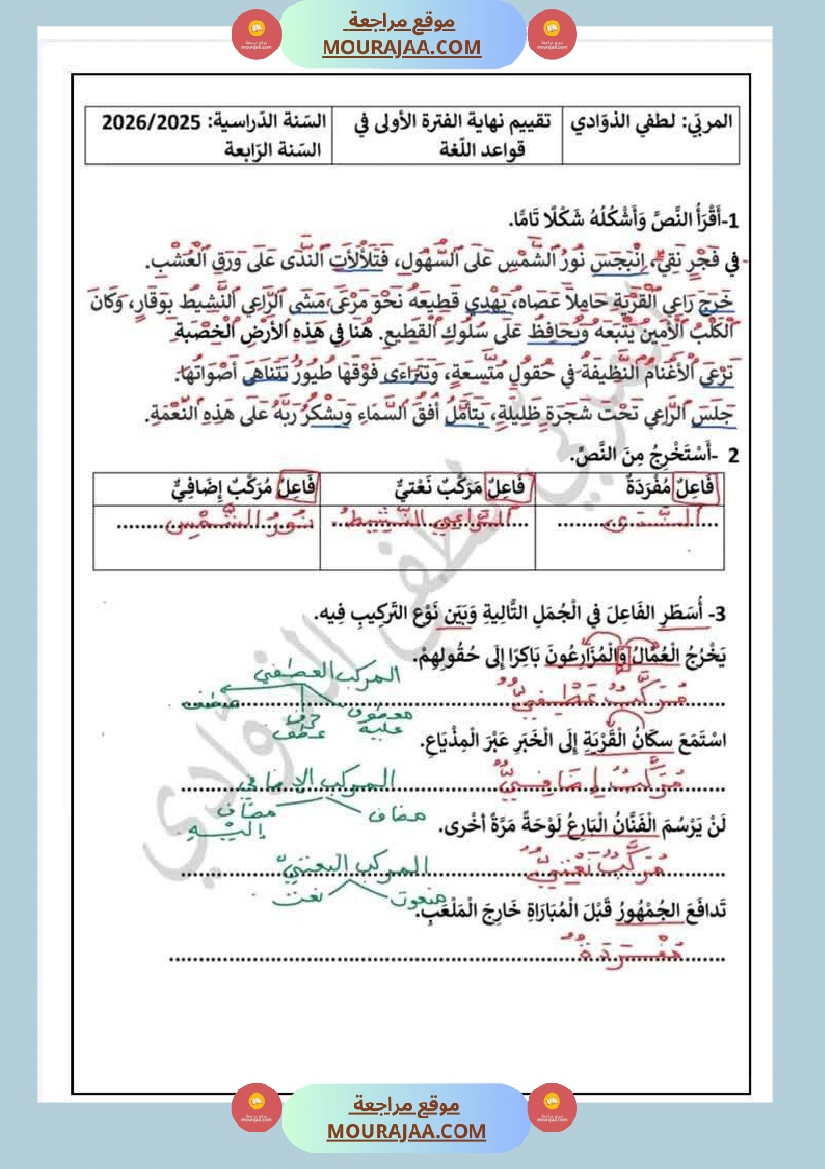 موقع مراجعة
MOURAJAA.COM
المربّي: لطفي الذوّادي
تقييم نهاية الفترة الأولى في قواعد اللّغة
السّنة الدّراسية: 2026/2025
السّنة الرّابعة
1-أَقْرَأُ النَّصَّ وَأَشْكُلُهُ شَكْلًا تَامًّا.
في فَجْرٍ نَقِيٍّ، اِنْبَجَسَ نُورُ الشَّمْسِ عَلَى السُّهُولِ، فَتَلَأْلَأَتِ النَّدَى عَلَى وَرَقِ الْعُشْبِ.
خَرَجَ رَاعِي الْقَرْيَةِ حَامِلًا عَصَاهُ، يَهْدِي قَطِيعَهُ نَحْوَ مَرْعَى مَشَى الرَّاعِي النَّشِيطُ بِوَقَارٍ، وَكَانَ
الْكَلْبُ الْأَمِينُ يَتْبَعُهُ وَيُحَافِظُ عَلَى سُلُوكِ الْقَطِيعِ. هُنَا فِي هَذِهِ الْأَرْضِ الْخَصْبَةِ
تَرْعَى الْأَغْنَامُ النَّظِيفَةُ فِي حُقُولٍ مُتَّسِعَةٍ، وَتَتَرَاءَى فَوْقَهَا طُيُورٌ تَتَنَاهَى أَصْوَاتُهَا.
جَلَسَ الرَّاعِي تَحْتَ شَجَرَةٍ ظَلِيلَةٍ، يَتَأَمَّلُ أُفُقَ السَّمَاءِ وَيَشْكُرُ رَبَّهُ عَلَى هَذِهِ النِّعْمَةِ.
2 -أَسْتَخْرِجُ مِنَ النَّصِّ.
فَاعِلٌ مُفْرَدَةٌ
فَاعِلٌ مَرَكَّبٌ نَعْتيٌّ
فَاعِلٌ مُرَكَّبٌ إِضَافِيٌّ
النَّدَى
الرَّاعِي النَّشِيطُ
نُورُ الشَّمْسِ
3- أُسَطِّرِ الفَاعِلَ فِي الْجُمَلِ التَّالِيةِ وَبَيِّن نَوْعَ التَّرْكِيبِ فِيهِ.
يَخْرُجُ الْعُمَّالُ وَالْمُزَارِعُونَ بَاكِرًا إِلَى حُقُولِهِمْ.
مُرَكَّبٌ عَطْفِيٌّ
المركب العطفي
معطوف عليه
حرف عطف
معطوف
اسْتَمَعَ سكَانُ الْقَرْيَةِ إِلَى الْخَبَرِ عَبْرَ الْمِذْيَاعِ.
مُرَكَّبٌ إِضَافِيٌّ
المركب الإضافي
مضاف
مضاف إليه
لَنْ يَرْسُمَ الْفَنَّانُ الْبَارِعُ لَوْحَةً مَرَّةً أُخْرى.
مُرَكَّبٌ نَعْتِيٌّ
المركب النعتي
منعوت
نعت
تَدافَعَ الجُمْهُورُ قَبْلَ الْمُبَارَاةِ خَارِجَ الْمَلْعَبِ.
مُفْرَدَةٌ
لطفي الذوّادي
موقع مراجعة
MOURAJAA.COM